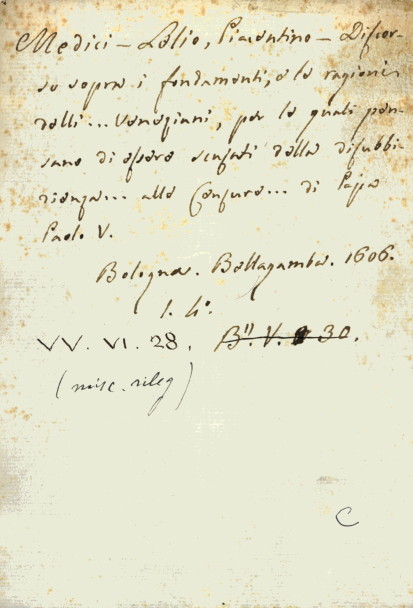 Medici – Lelio, Piacentino – Discor-
so sopra i fondamenti, e le ragioni
delli... Veneziani, per le quali pen-
sano di essere scusati della disubbi-
dienza... alle Censure... di Papa
Paolo V.
Bologna. Bellagamba. 1606.
1. 4°.
VV. VI. 28. B". V. 30.
(misc. rileg)
C